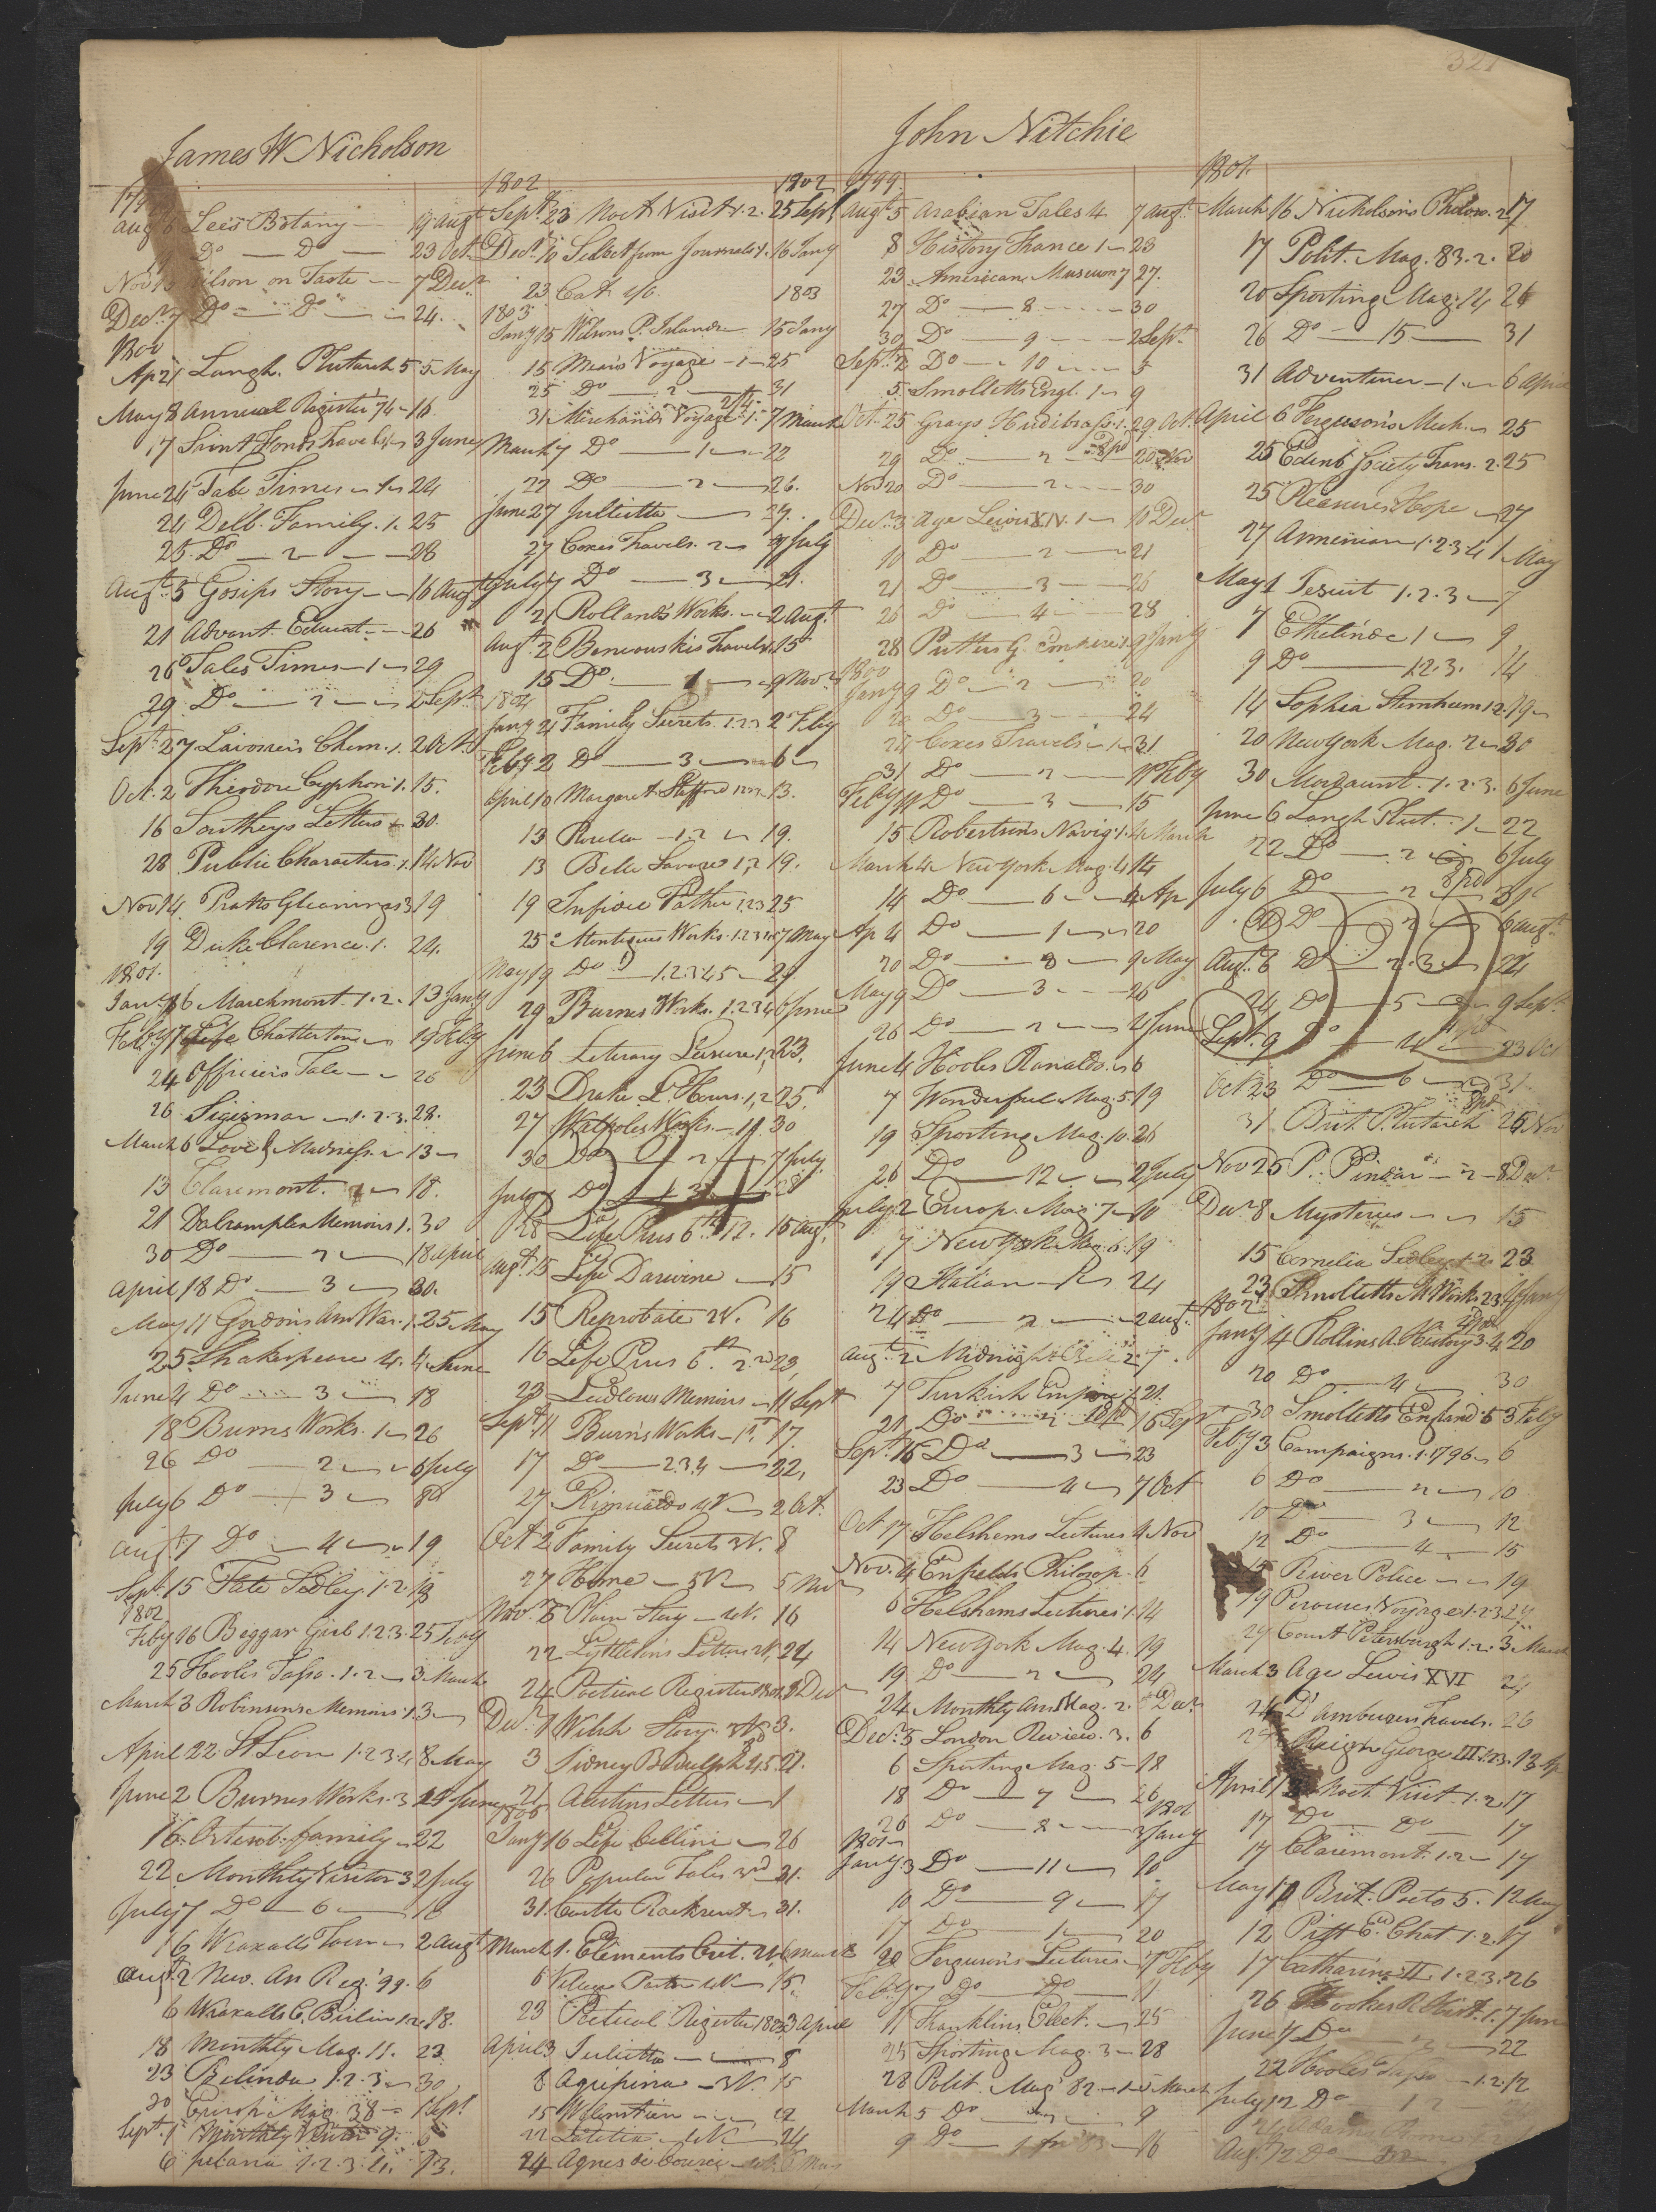 321
James W Nicholson
Augt 6 Lees Botany — 19 Augt
Do — Do — 23 Oct.
Nov 13 on Taste — 7 Decr
Decr 7 Do — Do — 24.
1800
Ap 21 Langh. Plutarch 5 5 May
May 8 Annual Register 74 — 16
17 Saint Fonds Travels 3 June
June 24 Tale Times — 1 — 24
24 Delb. Family. 1. 25
25 Do — 2 — 28
Augt 5 Gosips Story — 16 Augt
21 Advant. Educat. — 26
26 Tales Times — 1 — 29
29 Do — 2 — 2 Sept.
Sept 27 Lavosiers Chem. 1. 2 Oct.
Oct. 2 Theodore Cyphon. 1. 15.
16 Southeys Letters — 30.
28 Public Characters. 1. 14 Nov
Nov 14 Pratts Gleanings 3 19
19 Duke Clarence. 1. 24.
1801.
Jany 6 Marchmont. 1. 2. 13 Jany
Feby 17 Life Chatterton — 19 Feby
24 Officers Tale — 26
26 Sigismar — 1. 2. 3. 28.
March 6 Love & Madness. — 13 —
13 Claremont. — 18.
21 Dalrymples Memoirs 1. 30
30 Do — 2 — 18 April
April 18 Do — 3 — 30.
May 11 Gordons Am War. 1. 25 May
25 Shakespeare 4. 4 June
June 4 Do — 3 — 18
18 Burns Works. 1 — 26
26 Do — 2 — 6 July
July 6 Do — 3 —
Augt 7 Do — 4 — 19
Sept. 15 Kate Sedley. 1. 2. 18
1802
Feby 16 Beggar Girl 1. 2. 3. 25 Feby
25 Hooles Tasso. 1. 2 — 3 March
March 3 Robinsons Memoirs 1. 3 —
April 22 St Leon 1. 2. 3. 4 8 May
June 2 Burns Works. 3 June
16 Ortenb. family — 22
22 Monthly Visitor 3 2 July
July 7 Do — 6 — 16
16 Wraxalls Tour — 2 Augt
Augt 2 New. An Reg. 99. 6
6 Wraxalls C. Berlin 1. 2. 18.
18 Monthly Mag. 11. 23
23 Belinda 1. 2. 3. — 30
30 Europ. Mag. 38 — 1 Sept.
Sept. 1 Monthly Visitor 9. 6
6 1. 2. 3. 4. 13.
1802 1802
Septr 23 Noct Visit 1. 2. 25 Sept
Decr 10 Select from Journals 1. 16 Jany
23 Cat 1803
1803
Jany 15 Wilsons P. Islands — 15 Jany
15 Mears Voyage — 1 — 25
25 Do — 2 — 31
31 Marchands Voyage 1. 7 March
March 7 Do — 1 — 22
22 Do — 2 — 26.
June 27 Julietta — 27.
27 Coxes Travels. 2 — 7 July
July 7 Do — 3 — 21.
21 Rollands Works. — 2 Augt
Augt. 2 Beneouskis Travels 15
15 Do — 1 — 9 Novr
1804
Jany 21 Family Secrets. 1. 2. 2 Feby
Feby 2 Do — 3 — 6 —
April 10 Margaret Stafford 13.
13 — 1. 2 — 19.
13 Belle Savage 1, 2 19.
19 Infidel Father 1. 2. 3 25
25 Montagues Works. 1. 2. 3. 7 May
May 19 Do — 1. 2. 3. 4. 5 — 29
29 Burns Works. 1. 2. 3. 4 6 June
June 6 Literary Leisure 1, 23.
23 Drake L. Hours. 1, 2 25.
27 Walpoles Works. — 1. 30
30 Do — 2 — 7 July
July 7 Do — 3 — 28
28 Life Pius 6th 12. 15 Augt.
Augt. 15 Life Darwine — 15
15 Reprobate 2V. 16
16 Life Pius 6th 2. 23,
23 Ludlows Memoirs — 11 Sept
Sept. 11 Burns Works — 1st. 17.
17 Do — 2. 3. 4 — 22,
27 Rimualdo 4V — 2 Oct.
Oct 2 Family Secrets 3V. 8
27 Home — 5V — 5 Nov
Novr 5 Plain Story — 4V. 16
22 Lyttletons Letters 2V. 24
24 Poetical Register 1801. Decr
Decr 1 Welsh Story. 3V 3.
3 Sidney Bidulph 4. 5. 21.
21 Austins Letters — 1
1805
Jany 16 Life Cellini — 26
26 Popular Tales 3rd — 31.
31 Castle Rackrent — 31.
March 1. Elements Crit. 2V. 6 March
6 Village Pastor 4V — 15.
23 Poetical Register 3 April
April 3 Julietta — 8
8 Agripina — 3V. 15
15 Walenstien — 22
22 Latitia — 4V. — 24
24 Agnes de Courci — 4V. 5 May
John Nitchie
1799.
Augt 5 Arabian Tales 4 7 Augt.
8 History France 1 — 23
23 American Museum 7 27.
27 Do — 8 — 30
30 Do — 9 — 2 Sept.
Septr 2 Do — 10 — 5
5 Smolletts Engl. 1 — 9
Oct. 25 Grays Hudibrass. 1. 29 Oct.
29 Do — 2 — 20 Nov
Nov 20 Do — 2 — 30
Decr 3 Age Lewis XIV. 1 — 10 Decr
10 Do — 2 — 21
21 Do — 3 — 26
26 Do — 4 — 28
28 Putters G. Empire 1. 9 Jany
1800
Jany 9 Do — 2 — 20
20 Do — 3 — 24
24 Coxes Travels — 1 — 31
31 Do — 2 — 11 Feby
Feby 11 Do — 3 — 15
15 Robertsons Navig. 1. 4 March
March 4 New York Mag. 4 14
14 Do — 6 — 4 Ap
Ap 4 Do — 1 — 20
20 Do — 8 — 9 May
May 9 Do — 3 — 26
26 Do — 2 — 4 June
June 4 Hooles Rinaldo. — 6
7 Wonderful Mag. 5. 19
19 Sporting Mag. 10. 26
26 Do — 12 — 2 July
July 2 Europ. Mag. 7 — 10
17 New York Mag. 6. 19
19 Italian — 1 — 24
24 Do — 2 — 2 Augt.
Augt. 2 Midnight Bell 2. 7.
7 Turkish Empire 1. 21.
21 Do — 2 16 Sept
Sept. 16 Do — 3 — 23
23 Do — 4 — 7 Oct
Oct 17 Helshams Lectures 4 Nov
Nov. 4 Enfields Philosop. 6
6 Helshams Lectures 1. 14
14 New York Mag. 4. 19
19 Do — 2 — 24
24 Monthly Am Mag. 2. Decr.
Decr. 5 London Review. 3. 6
6 Sporting Mag. 5 — 18
18 Do — 7 — 26
1801
26 Do — 8 — 3 Jany
1801
Jany 3 Do — 11 — 10
10 Do — 9 — 17
17 Do — 1 — 20
20 Fergusons Lectures — 7 Feby
Feby 7 Do — Do — 11
11 Franklins Elect. — 25
25 Sporting Mag. 3 — 28
28 Polit. Mag 82 — 1 — 5 March
March 5 Do — 9
9 Do — 1 — 16
1801.
March 16 Nicholsons Philos. 2. 17
17 Polit. Mag. 83. 2. 20
20 Sporting Mag. 14 26
26 Do — 15 — 31
31 Adventurer — 1. — 6 April
April 6 Ferguson's Mech. — 25
25 Edinb Society Trans. 2. 25
25 Pleasures Hope — 27
27 Armenian 1. 2. 3. 4 1 May
May 1 Jesuit 1. 2. 3 — 7
7 Ethelinde 1 — 9
9 Do — 1. 2. 3. 14
14 Sophia Sternheim 1. 2. 19 —
20 New York Mag. 2 — 30
30 Mordaunt. 1. 2. 3. 6 June
June 6 Langh Plut. 1 — 22
22 Do — 2 — 6 July
July 6 Do — 2
Do — 2 — 6 Augt.
Augt. 6 Do — 2. 3 — 24
24 Do — 5 — 9 Sept.
Sept. 9 Do — 4 — 23 Oct
Oct 23 Do — 6 — 31
31 Brit. Plutarch 25 Nov
Nov 25 P. Pindar — 2 — 8 Decr
Decr 8 Mysteries — 15
15 Cornelia Sedley 1. 2. 23
23 Smolletts M. Works. 2. 3. 4 Jany
1802
Jany 4 Rollins A. History 3. 4 20
20 Do — 4 — 30
30 Smolletts England 5 3 Feby
Feby 3 Campaigns. 1. 1796 — 6
6 Do — 2 — 10
10 Do — 3 — 12
12 Do — 4 — 15
15 River Police — 19
19 Perouses Voyage 1. 2. 3. 29
29 Court Petersburgh 1. 2. 3 March
March 3 Age Lewis XVI 24
24 D'ambergers Travels. 26
Reign George III 1. 2. 3. 13 Ap
April Noct. Visit. 1. 2. 17
17 Do — Do — 17
17 Claremont. 1. 2 — 17
May 10 Brit. Poets 5. 12 May
12 Pitt E. Chat 1. 2. 17
17 Catharine II. 1. 2. 3. 26
26 Hookes R. Hist. 1. 7 June
June 7 Do — 2 — 22
22 Hooles Tasso — 1. 2. 12
July 12 Do — 1 2
Augt. 12 Do